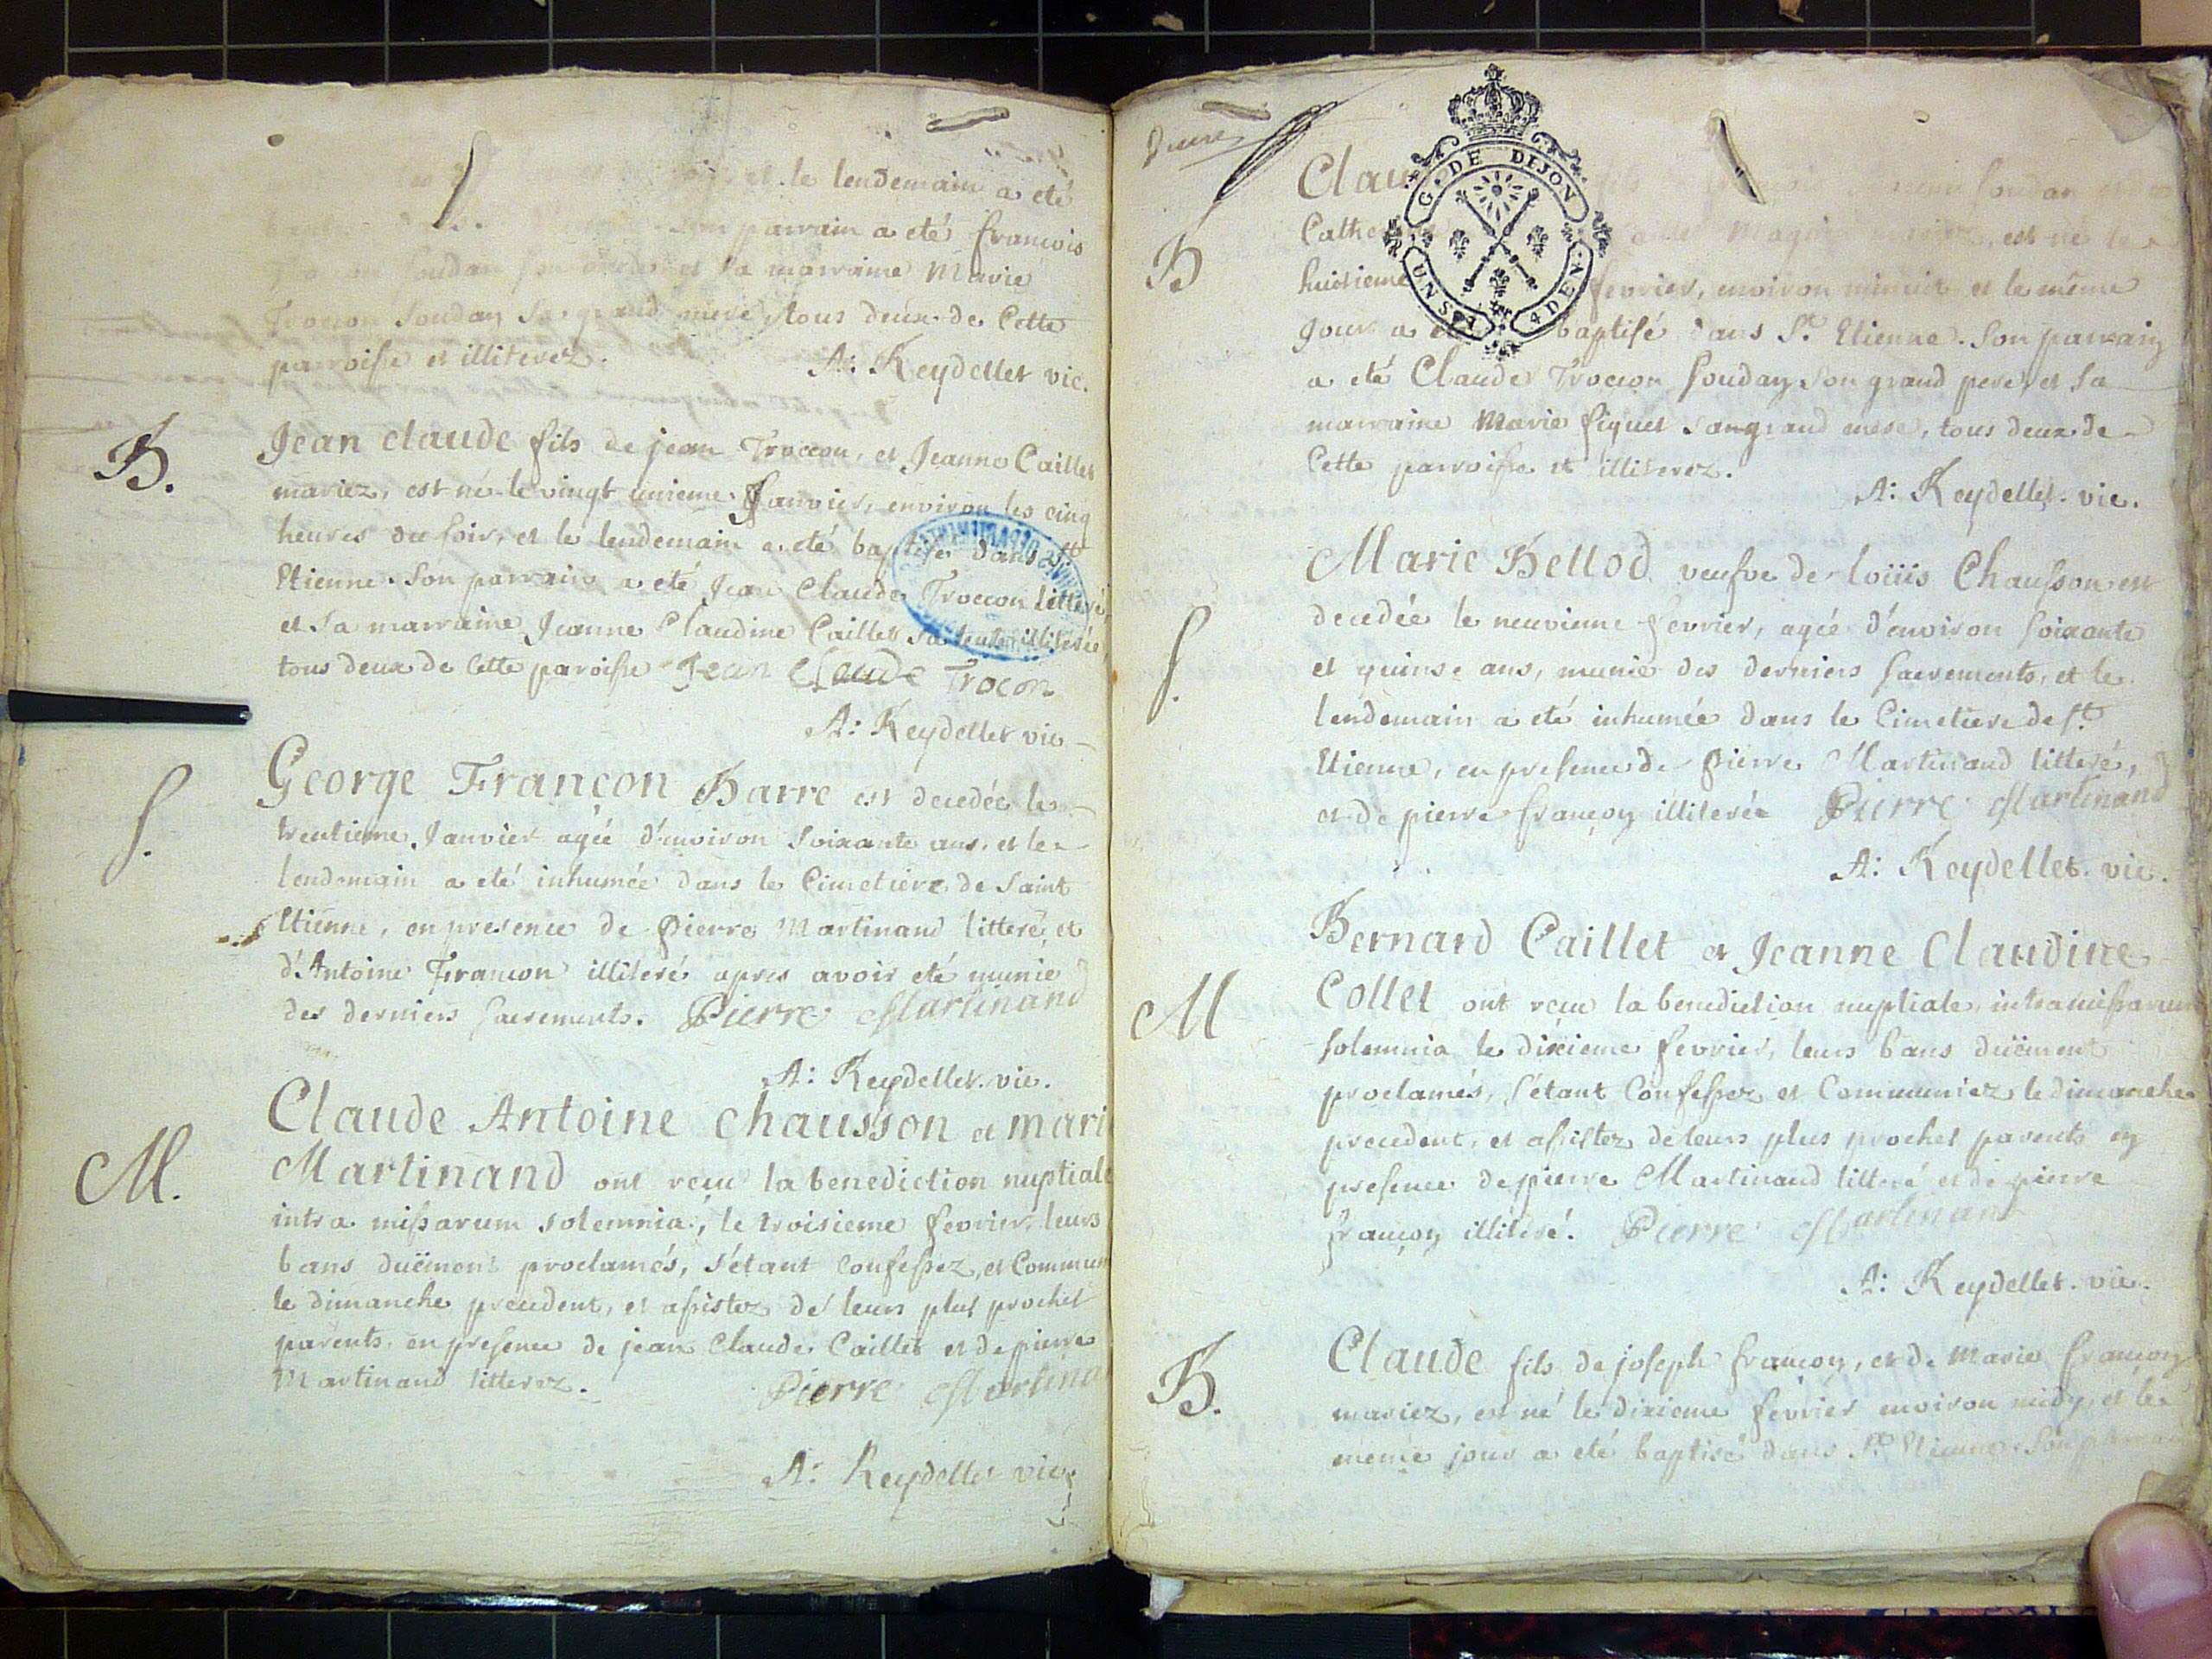 et le lendemain a eté
son parrain a eté françois
soudan et sa marraine Marie
Troccon Soudan sa grand mere tous deux de Cette
parroisse et illiterez.
A: Reydellet vic.
B.
Jean claude fils de jean Troccon, et Jeanne Caillet
mariez, est né le vingt unieme Janvier, environ les cinq
heures du soir, et le lendemain a eté baptisé dans St
Etienne. Son parrain a eté Jean Claude Troccon litteré,
et sa marraine Jeanne Claudine Caillet sa tante illiterée,
tous deux de Cette paroisse Jean Claude Trocon
A: Reydellet vic
S.
George Françon Barre est decedée le
trentieme Janvier agée d'environ soixante ans, et le
lendemain a eté inhumée dans le Cimetiere de Saint
Etienne, en presence de pierre Martinand litteré, et
d'Antoine Françon illiteré apres avoir eté munie
des derniers sacrements. Pierre Martinand
A: Reydellet. vic.
M.
Claude Antoine chausson et mari
Martinand ont reçu la benediction nuptiale
intra missarum solemnia, le troisieme fevrier, leurs
bans duëment proclamés, s'étant confessez, et Commun
le dimanche precedent, et assistez de leurs plus prochet
parents, en presence de jean Claude Caillet et de pierre
Martinand litterez.
Pierre Martina
A: Reydellet vic.
G. DE DIJON
UN S. 4 DEN.
B
Clau fils soudan
Cathe Caillet est né le
huitieme fevrier, environ minuit et le même
jour a eté baptisé dans St. Etienne. Son parrain
a eté Claude Troccon Soudan son grand pere, et sa
marraine Marie piquet sa grand mere, tous deux de
Cette parroisse et illiterez.
A: Reydellet. vic.
S.
Marie Bellod veufve de loüis Chausson est
decedée le neuvieme fevrier, agée d'environ soixante
et quinse ans, munie des derniers sacrements, et le
lendemain a eté inhumée dans le Cimetiere de St.
Etienne, en presence de pierre Martinand litteré,
et de pierre françon illiterée Pierre Martinand
A: Reydellet. vic.
M
Bernard Caillet et Jeanne Claudine
Collet ont reçu la benediction nuptiale, intra missarum
solemnia le dixieme fevrier, leurs bans duëment
proclamés, s'étant Confessez et Communiez le dimanche
precedent, et assistez de leurs plus prochet parents en
presence de pierre Martinand litteré et de pierre
françon illiteré. Pierre Martinand
A: Reydellet. vic.
B.
Claude fils de joseph françon, et de Marie françon
mariez, est né le dixieme fevrier environ midy, et le
meme jour a eté baptisé dans St. Etienne. Son parrain